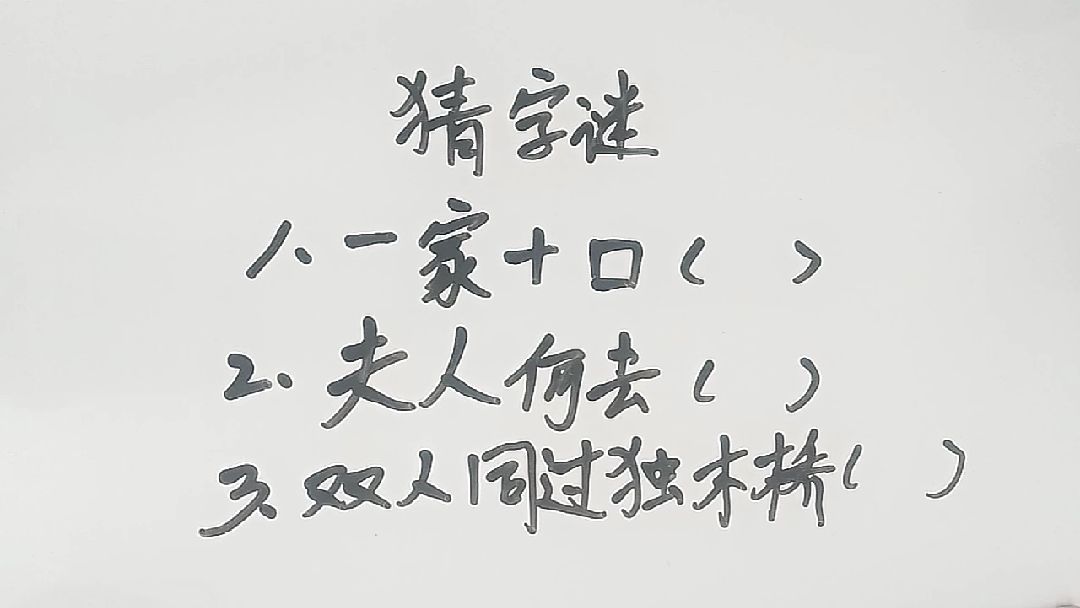 猜字谜
1.一家十口( )
2.夫人何去( )
3.双人同过独木桥( )